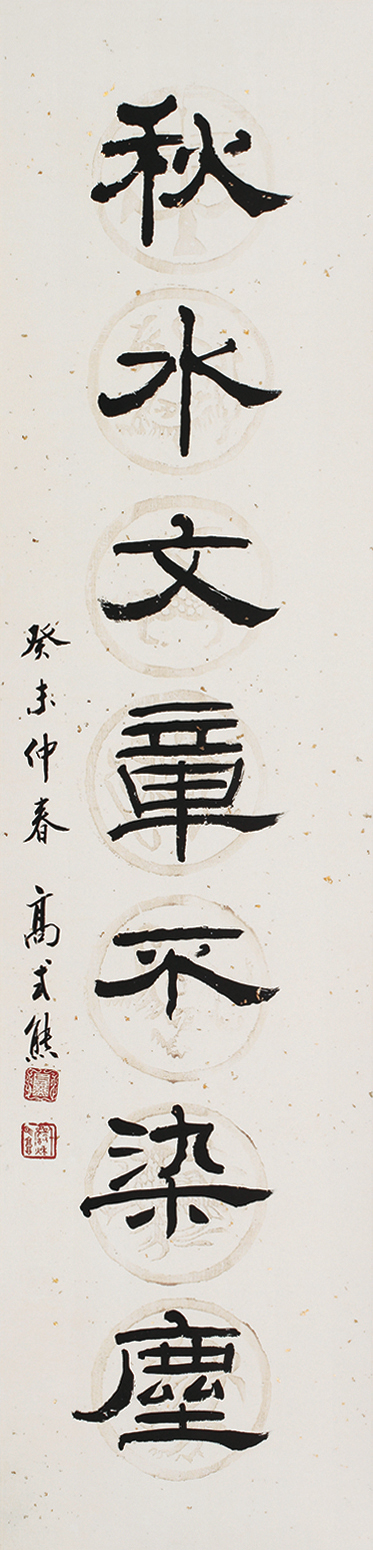 秋水文章不染塵
癸未仲春 高式熊